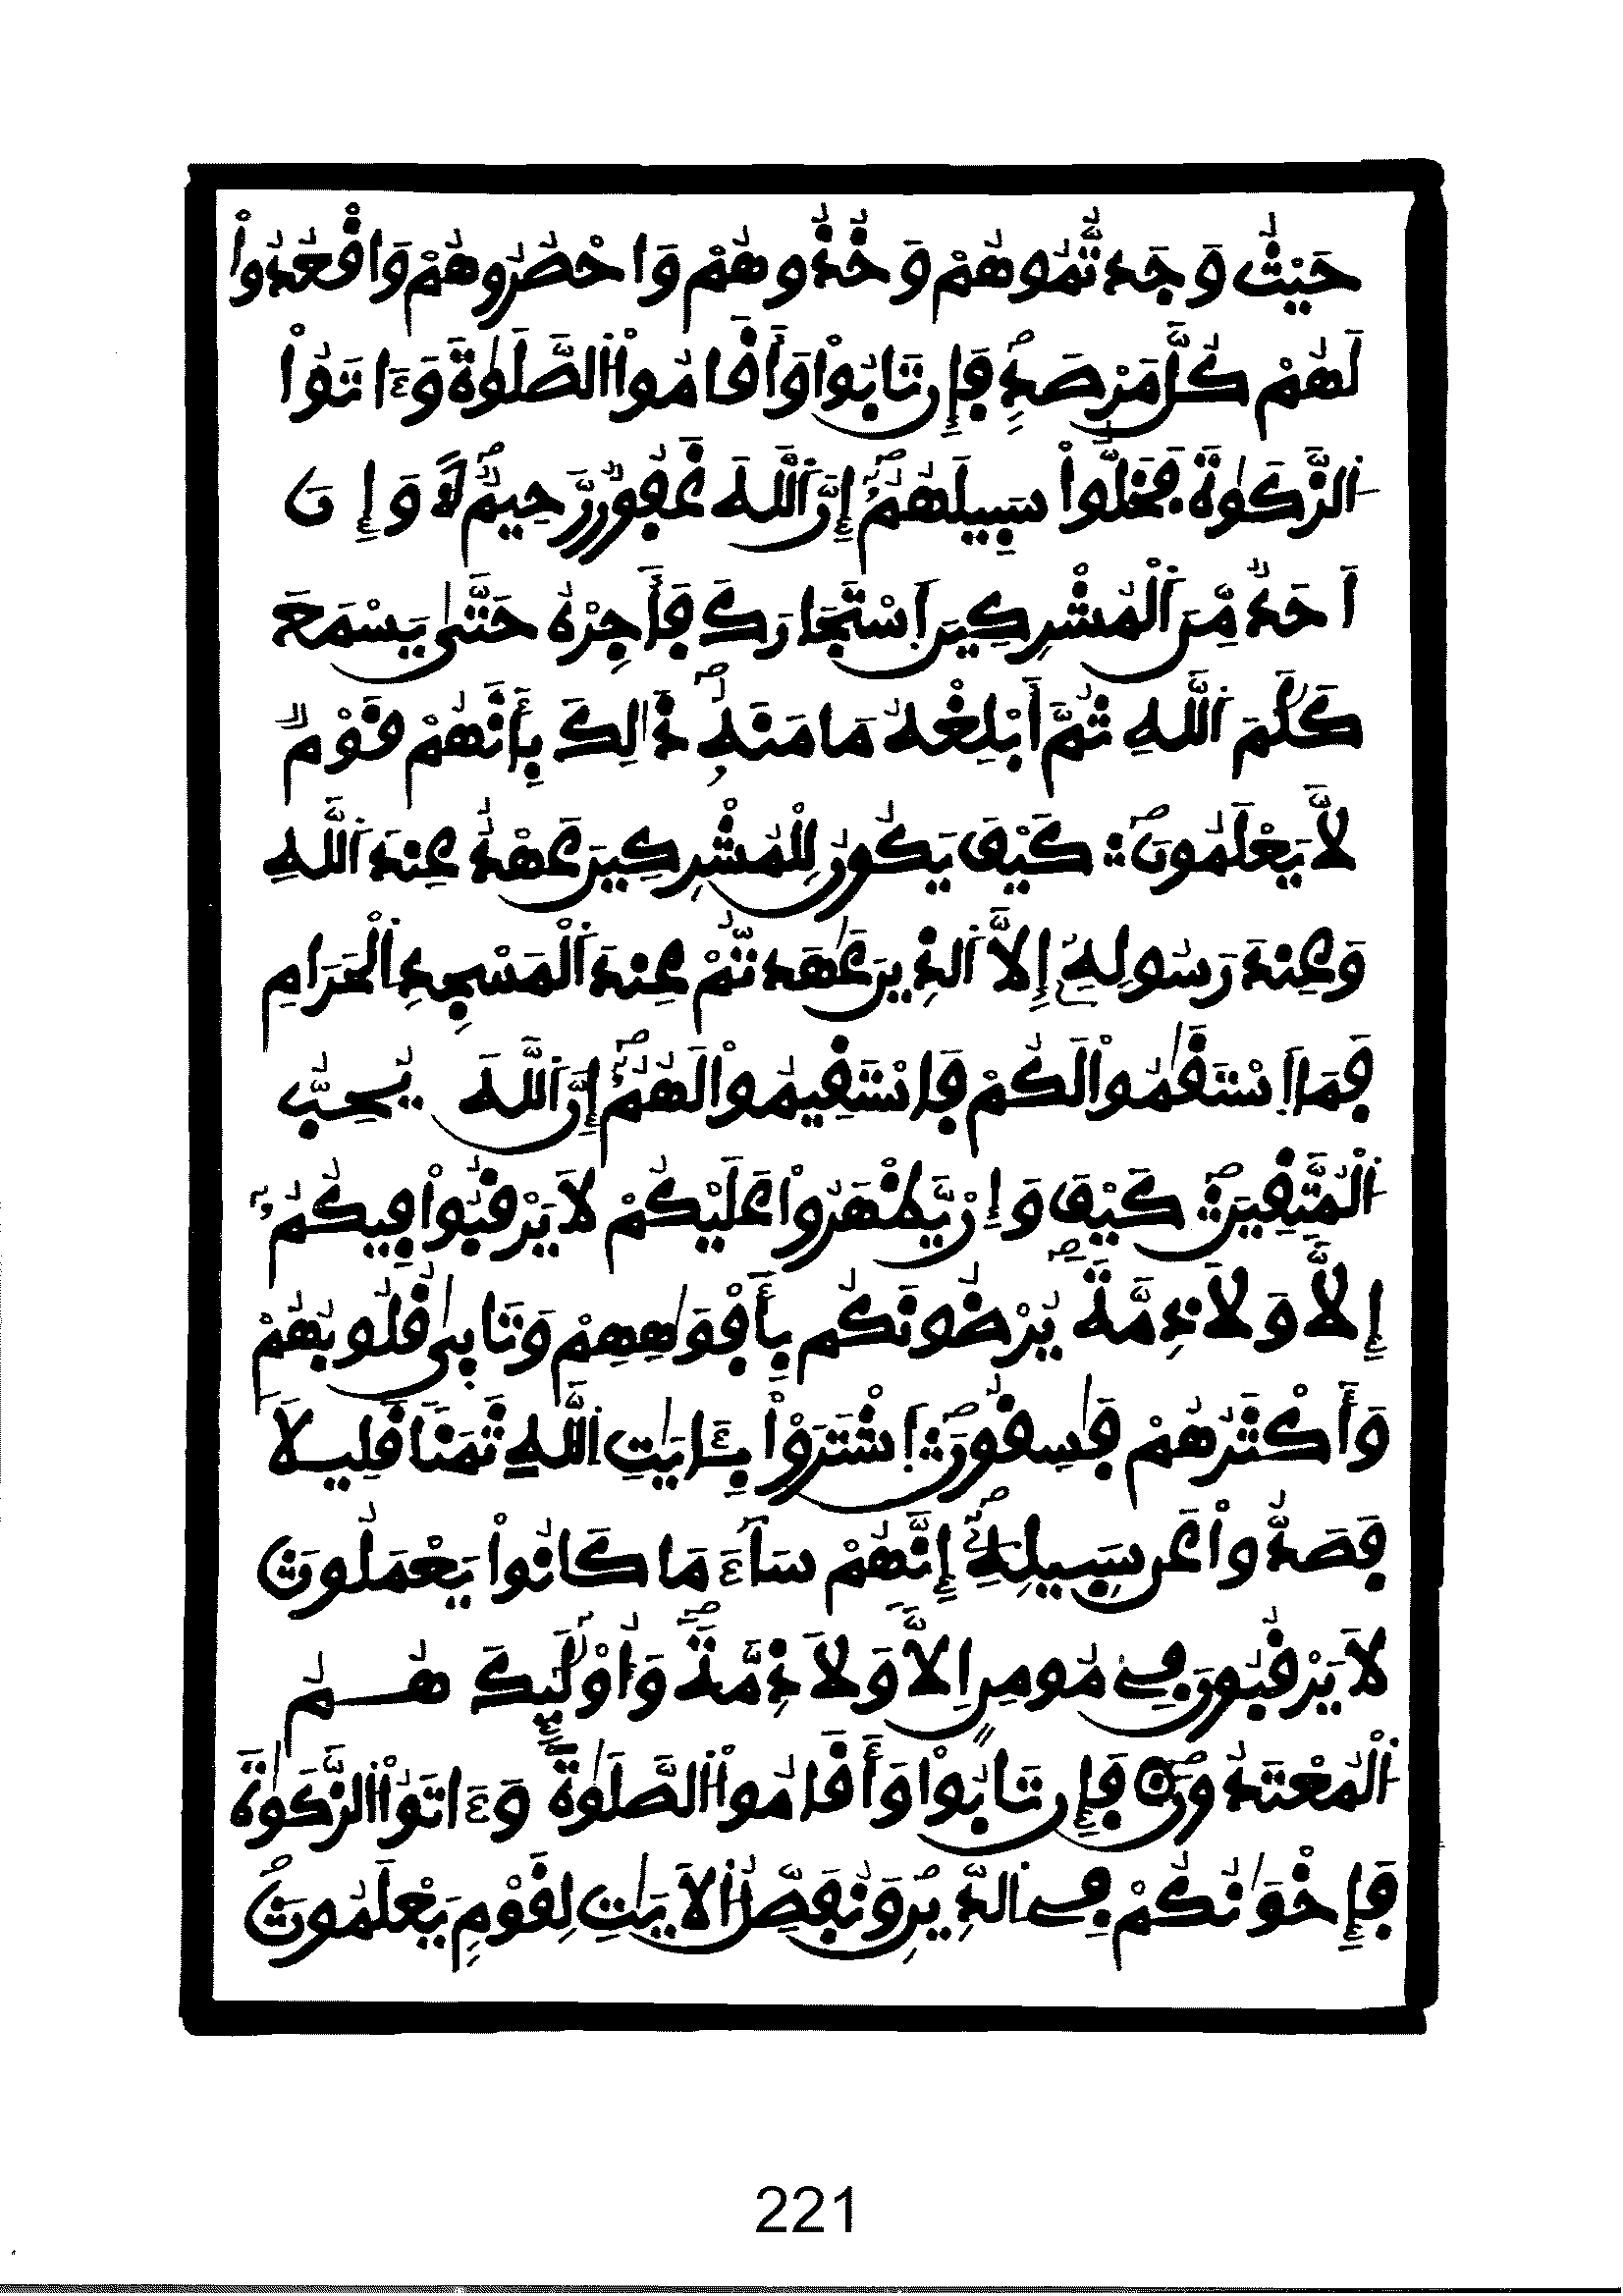 حَيْثُ وَجَدتُّمُوهُمْ وَخُذُوهُمْ وَاحْصُرُوهُمْ وَاقْعُدُواْ
لَهُمْ كُلَّ مَرْصَدٍ فَإِن تَابُواْ وَأَقَامُواْ الصَّلَوٰةَ وَءَاتَوُاْ
الزَّكَوٰةَ فَخَلُّواْ سَبِيلَهُمُۥٓ إِنَّ اَللَّهَ غَفُورٌ رَّحِيمٌ وَإِنَ
اَحَدٌ مِّنَ اَلْمُشْرِكِينَ اَسْتَجَارَكَ فَأَجِرْهُ حَتَّىٰ يَسْمَعَ
كَلَٰمَ اَللَّهِ ثُمَّ أَبْلِغْهُ مَامَنَهُۥ ذَٰلِكَ بِأَنَّهُمْ قَوْمٌ
لاَّ يَعْلَمُونَ كَيْفَ يَكُونُ لِلْمُشْرِكِينَ عَهْدٌ عِندَ اَللَّهِ
وَعِندَ رَسُولِهِۦٓ إِلاَّ اَلذِينَ عَٰهَدتُّمْ عِندَ اَلْمَسْجِدِ اِلْحَرَامِ
فَمَا اَسْتَقَٰمُواْ لَكُمْ فَاسْتَقِيمُواْ لَهُمُۥٓ إِنَّ اَللَّهَ يُحِبُّ
اُلْمُتَّقِينَ كَيْفَ وَإِنْ يَّظْهَرُواْ عَلَيْكُمْ لاَ يَرْقُبُواْ فِيكُمُۥٓ
إِلّاً وَلاَ ذِمَّةً يُرْضُونَكُم بِأَفْوَٰهِهِمْ وَتَابِىٰ قُلُوبُهُمْ
وَأَكْثَرُهُمْ فَٰسِقُونَ اَشْتَرَوْاْ بِـَٔايَٰتِ اِللَّهِ ثَمَناً قَلِيلاً
فَصَدُّواْ عَن سَبِيلِهِۦٓ إِنَّهُمْ سَآءَ مَا كَانُواْ يَعْمَلُونَ
لاَ يَرْقُبُونَ فِے مُومِنٍ اِلّاً وَلاَ ذِمَّةً وَأُوْلَٰٓئِكَ هُمُ
اُلْمُعْتَدُونَ فَإِن تَابُواْ وَأَقَامُواْ الصَّلَوٰةَ وَءَاتَوُاْ الزَّكَوٰةَ
فَإِخْوَٰنُكُمْ فِے اِلدِّينِ وَنُفَصِّلُ اُلاَيَٰتِ لِقَوْمٍ يَعْلَمُونَ
221